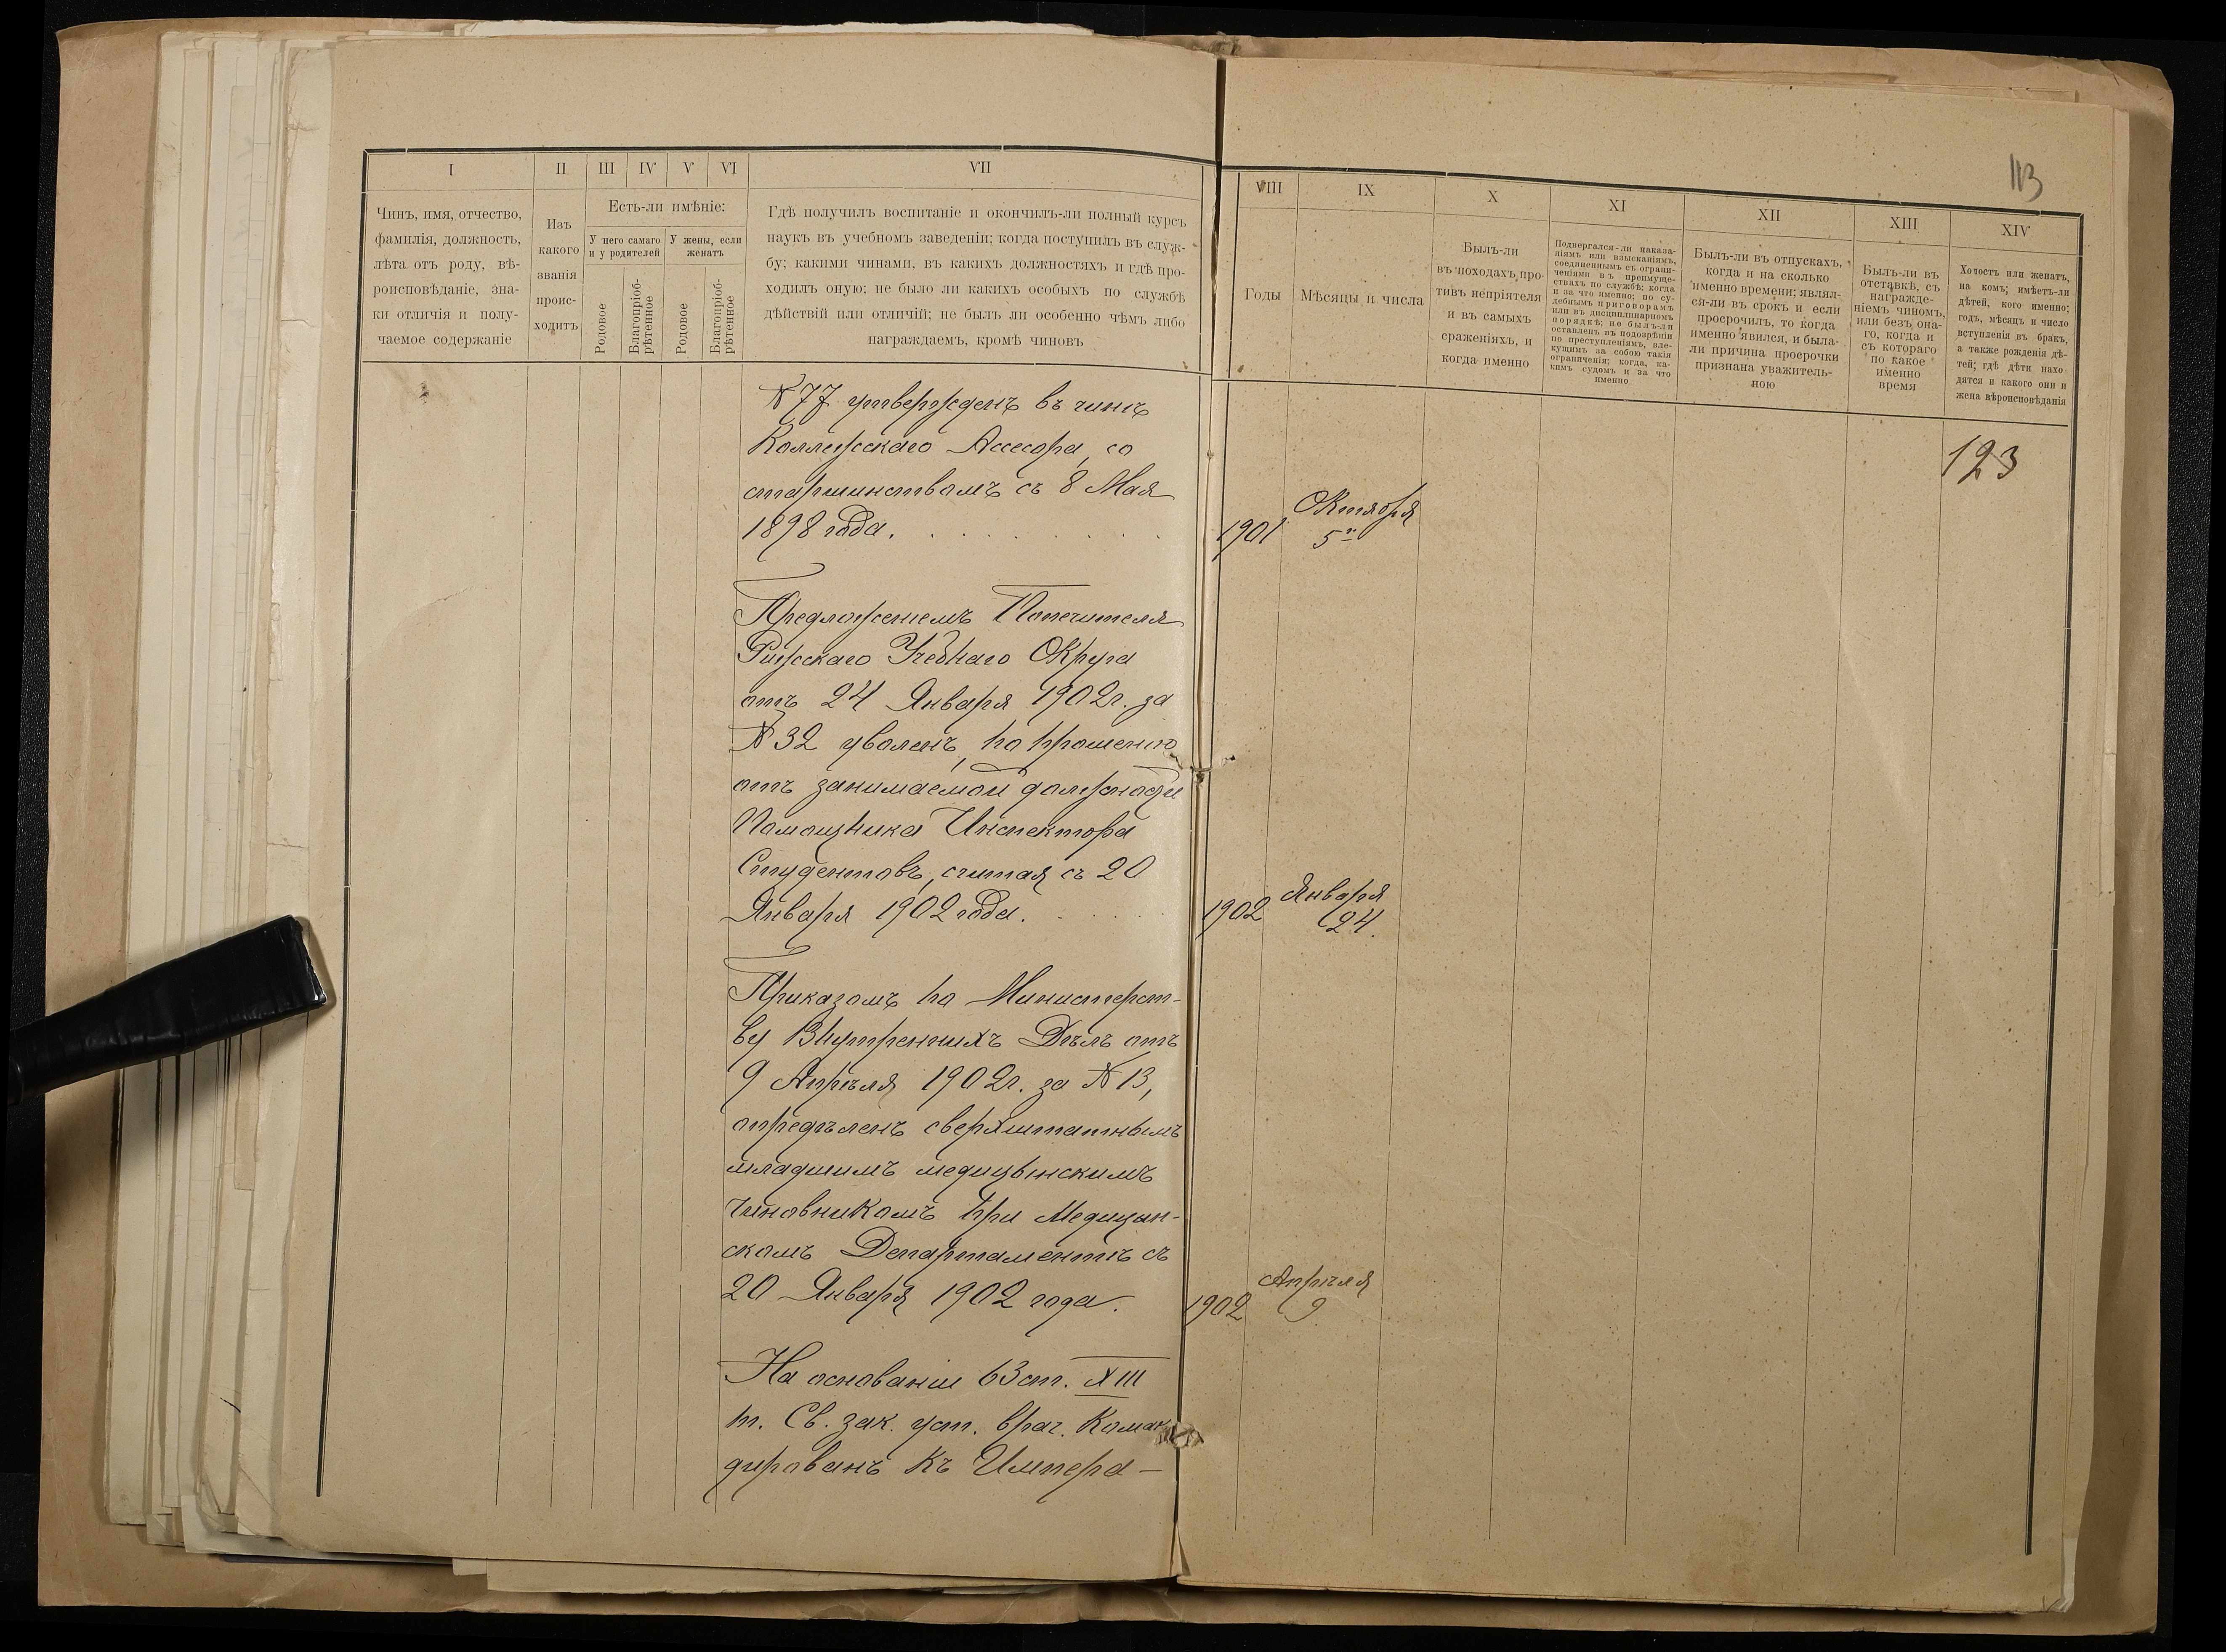 113
I
II
III
IV
V
VI
VII
Чинъ, имя, отчество,
фамилія, должность,
лѣта отъ роду, вѣ-
роисповѣданіе, зна-
ки отличія и полу-
чаемое содержаніе
Изъ
какого
званія
проис-
ходитъ
Есть-ли имѣніе:
У него самаго
и у родителей
У жены, если
женатъ
Родовое
Благопріоб-
рѣтенное
Родовое
Благопріоб-
рѣтенное
Гдѣ получилъ воспитаніе и окончилъ-ли полный курсъ
наукъ въ учебномъ заведеніи; когда поступилъ въ служ-
бу; какими чинами, въ какихъ должностяхъ и гдѣ про-
ходилъ оную; не было ли какихъ особыхъ по службѣ
дѣйствій или отличій; не былъ ли особенно чѣмъ либо
награждаемъ, кромѣ чиновъ
VIII
IX
X
XI
XII
XIII
XIV
Годы
Мѣсяцы и числа
Былъ-ли
въ походахъ про-
тивъ непріятеля
и въ самыхъ
сраженіяхъ, и
когда именно
Подвергался-ли наказа-
ніямъ или взысканіямъ,
соединеннымъ съ ограни-
ченіями въ преимуще-
ствахъ по службѣ; когда
и за что именно; по су-
дебнымъ приговорамъ
или въ дисциплинарномъ
порядкѣ; не былъ-ли
оставленъ въ подозрѣніи
по преступленіямъ, вле-
кущимъ за собою такія
ограниченія; когда, ка-
кимъ судомъ и за что
именно
Былъ-ли въ отпускахъ,
когда и на сколько
именно времени; являл-
ся-ли въ срокъ и если
просрочилъ, то когда
именно явился, и была-
ли причина просрочки
признана уважитель-
ною
Былъ-ли въ
отставкѣ, съ
награжде-
ніемъ чиномъ,
или безъ она-
го, когда и
съ котораго
по какое
именно
время
Холостъ или женатъ,
на комъ; имѣетъ-ли
дѣтей, кого именно;
годъ, мѣсяцъ и число
вступленія въ бракъ,
а также рожденія дѣ-
тей; гдѣ дѣти нахо
дятся и какого они и
жена вѣроисповѣданія
123
№ 77 утвержденъ въ чинѣ
Коллежскаго Ассесора, со
старшинствомъ съ 8 Мая
1898 года. . . . . . . . .
1901 Октября
5
Предложеніемъ Попечителя
Рижскаго Учебнаго Округа
отъ 24 Января 1902 г. за
№ 32 уволенъ, по прошенію
отъ занимаемой должности
Помощника Инспектора
Студентовъ, считая съ 20
Января 1902 года. . . . . .
1902 Января
24.
Приказомъ по Министерст-
ву Внутреннихъ Дѣлъ отъ
9 Апрѣля 1902 г. за № 13,
опредѣленъ сверхштатнымъ
младшимъ медицинскимъ
чиновникомъ при Медицин-
скомъ Департаментѣ съ
20 Января 1902 года.
1902 Апрѣля
9
На основаніи 63 ст. XIII
т. Св. зак. уст. врач. Коман
дированъ къ Импера-